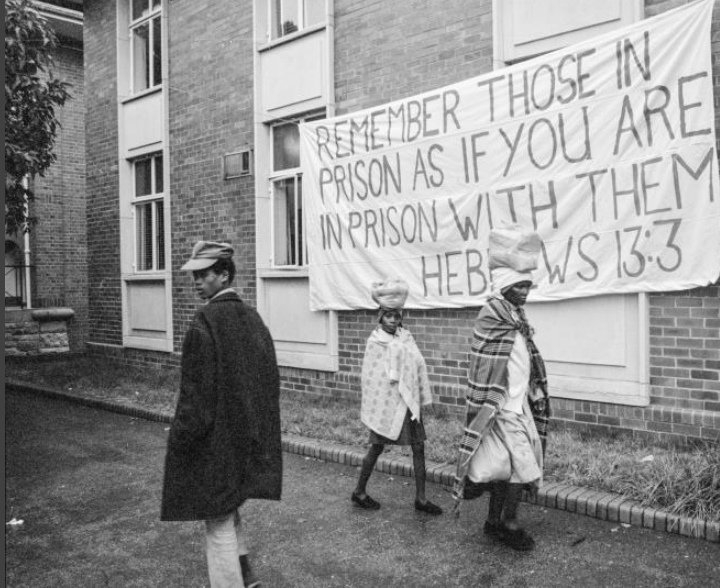 REMEMBER THOSE IN
PRISON AS IF YOU ARE
IN PRISON WITH THEM
HEBREWS 13:3